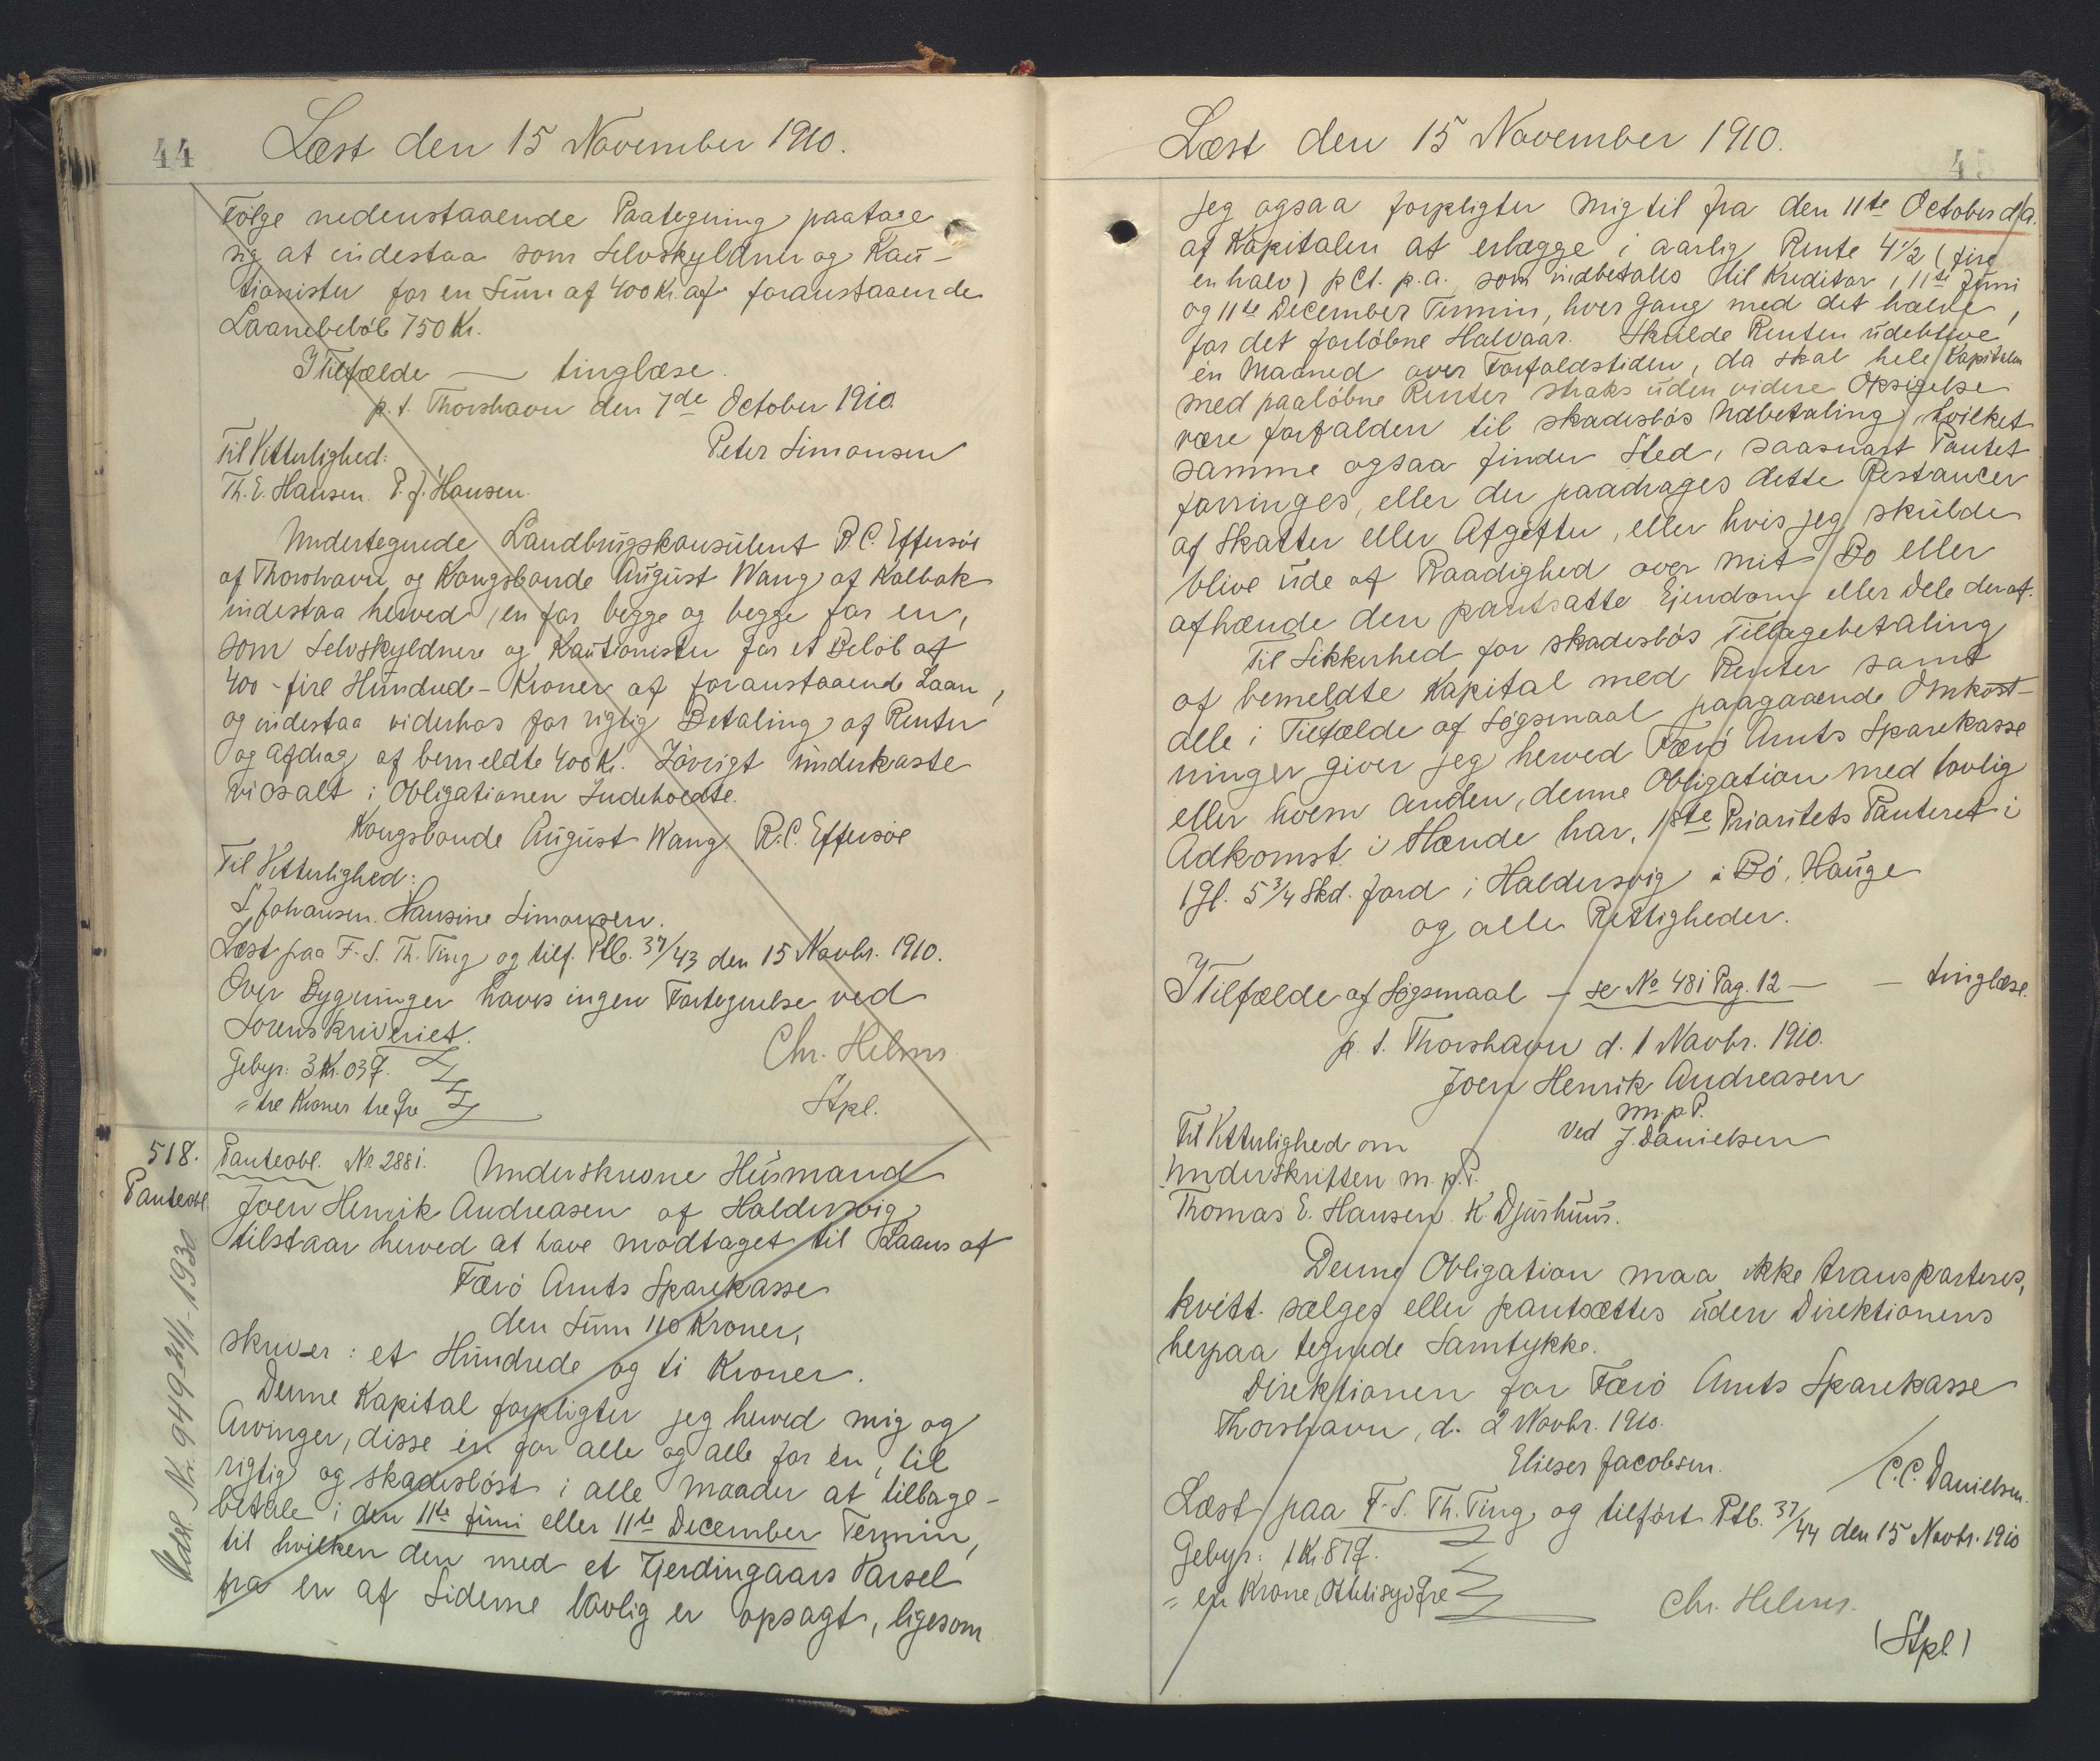 44
Læst den 15 November 1910.
Følge nedenstaaende Paategning paatage
sig at indestaa som Selvskyldner og Kau-
tionister for en Sum af 400 Kr. af foranstaaende
Laanebeløb 750 Kr.
I Tilfælde — tinglæse.
p. t. Thorshavn den 7de October 1910.
Peter Simonsen
Til Vitterlighed:
Th. E. Hansen. P. J. Hansen.
Undertegnede Landbrugskonsulent R. C. Effersøe
af Thorshavn og Kongsbonde August Wang af Kalbak
indestaa herved, en for begge og begge for en,
som Selvskyldnere og Kautionister for et Beløb af
400 - fire Hundrede - Kroner af foranstaaende Laan,
og indestaa viderhos for rigtig Betaling af Renter
og Afdrag af bemeldte 400 Kr. Iøvrigt underkaste
vi os alt i Obligationen Indeholdte.
Kongsbonde August Wang R. C. Effersøe
Til Vitterlighed:
S. Johansen. Hansine Simonsen.
Læst paa F. S. Th. Ting og tilf. Ptb. 37/43 den 15 Novbr. 1910.
Over Bygninger haves ingen Fortegnelse ved
Sorenskriveriet.
Chr. Helms.
Gebyr: 3 Kr. 03 Ø.
= tre Kroner tre Øre
Stpl.
518.
Panteobl.
Panteobl. Nr. 288i. Underskrevne Husmand
Joen Henrik Andreasen af Haldersvig
tilstaar herved at have modtaget til Laans af
Færø Amts Sparekasse
den Sum 110 Kroner,
skriver: et Hundrede og ti Kroner.
Denne Kapital forpligter jeg herved mig og
Arvinger, disse én for alle og alle for én, til
rigtig og skadesløst i alle Maader at tilbage-
betale i den 11te Juni eller 11te December Termin,
til hvilken den med et Fjerdingaars Varsel
fra en af Siderne lovlig er opsagt, ligesom
Udsl. Nr. 949 1930
45
Læst den 15 November 1910.
jeg ogsaa forpligter mig til fra den 11te October d/a.
af Kapitalen at erlægge i aarlig Rente 4½ (fire
en halv) pCt. p.a. som indbetales til Kreditor i 11te Juni
og 11te December Termin, hver Gang med det halve,
for det forløbne Halvaar. Skulde Renten udeblive
én Maaned over Forfaldstiden, da skal hele Kapitalen
med paaløbne Renter straks uden videre Opsigelse
være forfalden til skadesløs Udbetaling, hvilket
samme ogsaa finder Sted, saasnart Pantet
forringes, eller der paadrages dette Restancer
af Skatter eller Afgifter, eller hvis jeg skulde
blive ude af Raadighed over mit Bo eller
afhænde den pantsatte Ejendom eller Dele deraf.
Til Sikkerhed for skadesløs Tilbagebetaling
af bemeldte Kapital med Renter samt
alle i Tilfælde af Søgsmaal paagaaende Omkost-
ninger giver jeg herved Færø Amts Sparekasse
eller hvem anden, denne Obligation med lovlig
Adkomst i Hænde har, 1ste Prioritets Panteret i
1 Gl. 5¾ Skd. Jord i Haldersvig i Bø, Hauge
og alle Rettigheder.
I Tilfælde af Søgsmaal — se No 48i Pag. 12 — — tinglæse.
p. t. Thorshavn d. 1 Novbr. 1910.
Joen Henrik Andreasen
m. p. P.
ved J. Danielsen
Til Vitterlighed om
Underskriften m. p. P.
Thomas E. Hansen. K. Djurhuus.
Denne Obligation maa ikke transporteres,
kvitt. sælges eller pantsættes uden Direktionens
herpaa tegnede Samtykke.
Direktionen for Færø Amts Sparekasse
Thorshavn, d. 2 Novbr. 1910.
Elieser Jacobsen. / C. C. Danielsen.
Læst paa F. S. Th. Ting og tilført Ptb. 37/44 den 15 Novbr. 1910
Gebyr: 1 Kr. 87 Ø.
= en Krone Ottetisyv Øre
Chr. Helms.
(Stpl.)